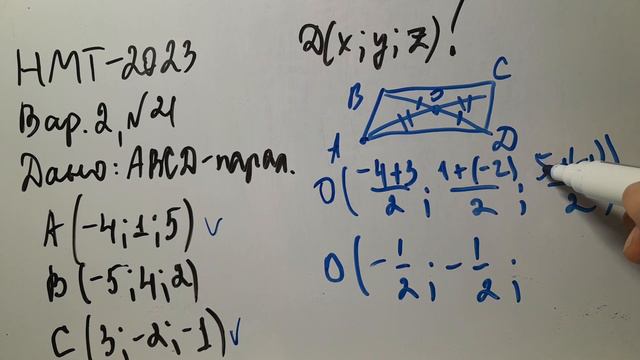 НМТ-2023
Вар. 2, №21
Дано: ABCD-парал.
A(-4; 1; 5) ✓
B(-5; 4; 2)
C(3; -2; -1) ✓
D(x; y; z)!
B C
O
A D
O((-4+3)/2; (1+(-2))/2; (5+(-1))/2)
O(-1/2; -1/2;